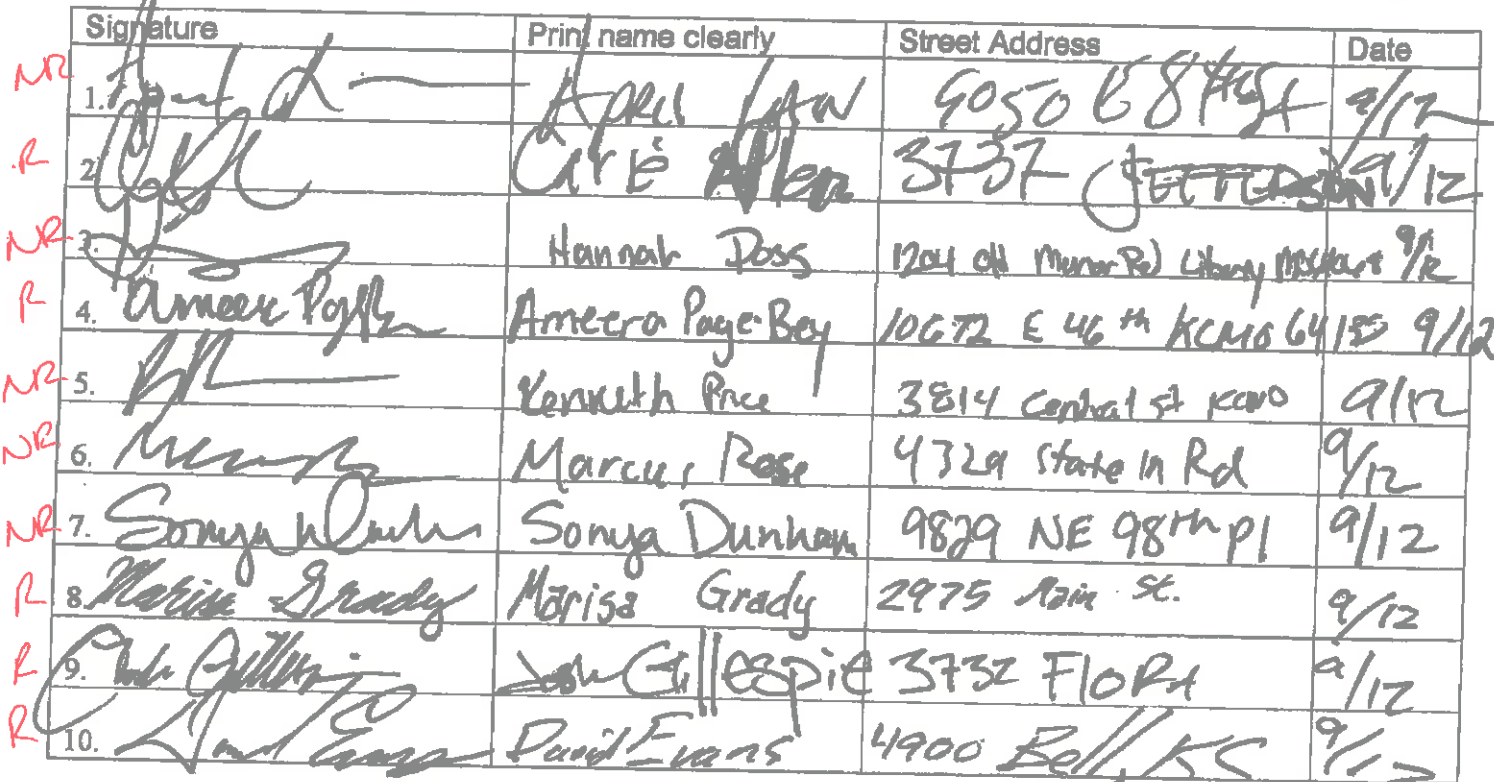 Signature Print name clearly Street Address Date
NR 1. April Law 9/12
R 2. Allen 3737 JEFFERSON 9/12
NR 3. Hannah Doss 1204 Old Manor Rd Liberty 9/12
R 4. Ameera Page-Bey 10672 E 46th KCMO 64133 9/12
NR 5. Kenneth Price 3814 Central st KCMO 9/12
NR 6. Marcus Rose 4329 State ln Rd 9/12
NR 7. Sonya Dunham Sonya Dunham 9829 NE 98th Pl 9/12
R 8. Marisa Grady Marisa Grady 2975 Main St. 9/12
R 9. Josh Gillespie 3732 FloRA 9/12
R 10. David Evans David Evans 4900 Bell, KC